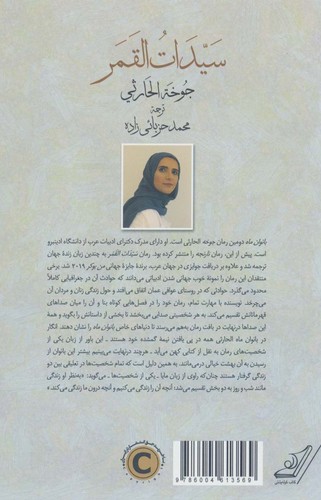 سَيِّدَاتُ القَمَر
جُوخَة الحَارثي
ترجمة
محمد حزبائی‌زاده
بانوان ماه دومین رمان جوخه الحارثی است. او دارای مدرک دکترای ادبیات عرب از دانشگاه ادینبرو
است. پیش از این، رمان نارنجه را منتشر کرده بود. رمان سیدات القمر به چندین زبان زندهٔ جهان
ترجمه شد و علاوه بر دریافت جوایزی در جهان عرب، برندهٔ جایزهٔ جهانی من بوکر ۲۰۱۹ شد. برخی
منتقدان این رمان را نمونهٔ خوب جهانی شدن ادبیاتی می‌دانند که حوادث آن در جغرافیایی کاملاً
محدود می‌گذرد. حوادثی که در روستای خوافی عمان اتفاق می‌افتد و حول زندگی زنان و مردان آن
می‌چرخد. نویسنده با مهارت تمام، رمان خود را در فصل‌هایی کوتاه بنا و آن را میان صداهای
قهرمانانش تقسیم می‌کند. به هر شخصیتی صدایی می‌بخشد تا بخشی از داستانش را بگوید و همهٔ
این صداها درنهایت در بافت رمان به‌هم می‌رسند تا دنیاهای خاص بانوان ماه را نشان دهند. انگار
در بانوان ماه الحارثی همه در پی یافتن نیمهٔ گمشدهٔ خود هستند. این باور از زبان یکی از
شخصیت‌های رمان به نقل از کتابی کهن آمده. هرچند درنهایت می‌بینیم بیشتر این بانوان از
رسیدن به آن بهشت خیالی درمی‌مانند. به همین دلیل است که تمام شخصیت‌ها در تعلیقی بین دو
زندگی گرفتار هستند چنان‌که راوی از زبان مایا ـ یکی از شخصیت‌ها ـ می‌گوید: «به‌نظر او زندگی
مانند شب و روز به دو بخش تقسیم می‌شد: آنچه آن را زندگی می‌کنیم و آنچه درون ما زندگی می‌کند.»
9 786004 613569